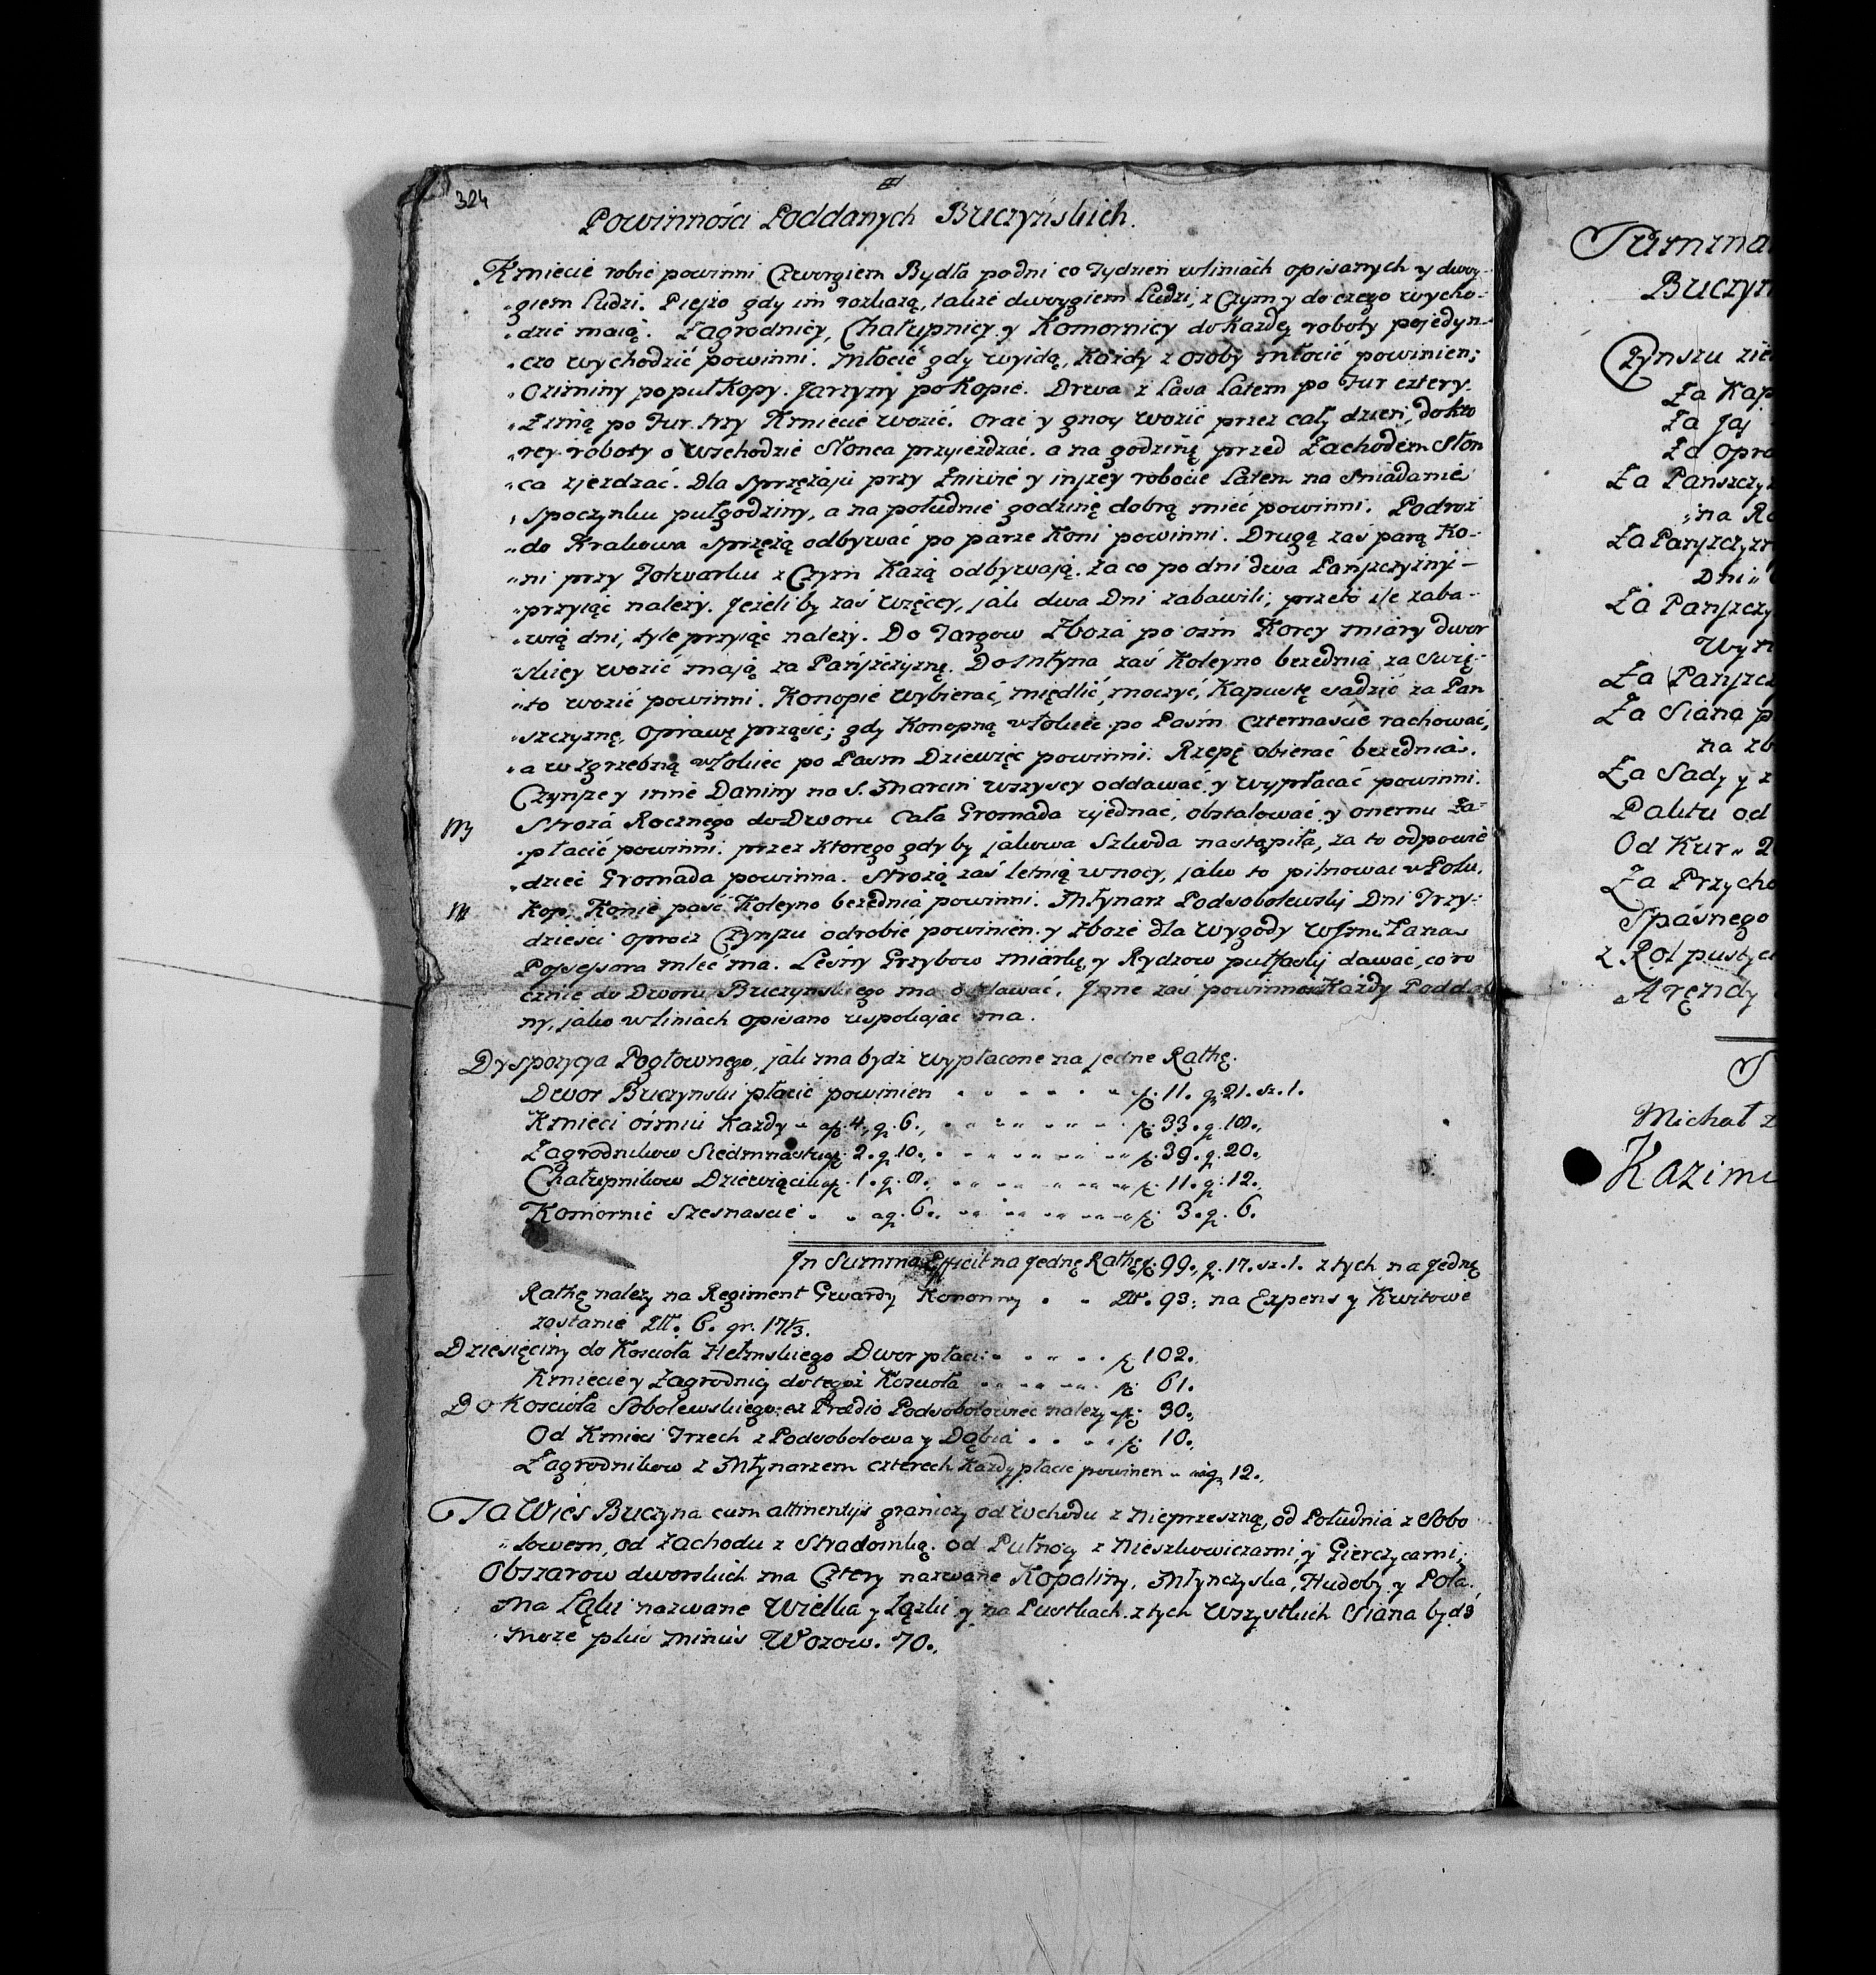 324
Powinności Poddanych Buczyńskich.
Kmiecie robić powinni Czworgiem Bydła po dni co Tydzień w liniach opisanych y dwoy-
giem Ludzi. Pieszo gdy im rozkażą, także dwoygiem Ludzi, z Czym y do czego wycho-
dzić maią. Zagrodnicy, Chałupnicy y Komornicy do każdey roboty pojedyn-
czo wychodzić powinni. Młócić gdy wyidą, Każdy z osoby młocić powinien;
Oziminy po puł Kopy. Jarzyny po Kopie. Drzwa z Lasa Latem po Fur cztery.
Zimą po Fur trzy Kmiecie wozić. Orać y gnoy wozić przez cały dzień, do kto
rey roboty o wschodzie Słonca przyieżdżać. a na godzinę przed Zachodem Słon
ca zjezdzać. Dla Sprzężaju przy Zniwie y inszey robocie Latem na sniadanie
Spoczynku pułgodziny, a na południe godzinę dobrą mieć powinni. Podroż
do Krakowa Sprzężą odbywać po parze Koni powinni. Drugą zaś parą Ko-
ni przy Folwarku z Czym Każą odbywają. za co po dni dwa Pańszczyzny
przyiąc należy. Jeżeliby zaś więcey, jak dwa Dni zabawili, przeto ile zaba-
wią dni, tyle przyiąc należy. Do Targow Zboza po ośm Korcy miary dwor
skiey wozić mają za Pańszczyznę. Do Młyna zaś Koleyno bezednia za Swię-
to wozić powinni. Konopie wybierać, międlić, moczyć, Kapustę sadzić za Pan
szczyznę, Oprawę prząść; gdy Konopną w łokiec po Pasm Czternascie rachować,
a w zgrzebną w łokiec po Pasm Dziewięc powinni. Rzepę obierać bezednia.
Czynsze y inne Daniny na S. Marcin wszyscy oddawać y wypłacać powinni.
Stroża Rocznego do Dworu Cała Gromada zjednać, obstalować y onemu Za-
płacić powinni. przez Ktorego gdy by jakowa Szkoda nastąpiła, za to odpowie
dzieć Gromada powinna. Strożą zaś letnią w nocy, jako to pilnować w Polu,
Kop. Konie paść Koleyno bezednia powinni. Młynarz Podsobolewski Dni Trzy-
dzieści oprocz Czynszu odrobić powinien y Zboże dla wygody Pana
Possessora mleć ma. Leśny Grzybow miarkę, y Rydzow pułfaski dawać, coro
cznie do Dworu Buczynskiego ma oddawać. Inne zaś powinności Każdy Podda
ny, jako w liniach opisano uspokajać ma.
Dyspozycya Pogłownego, jak ma bydz wypłacone na jedne Rathę.
Dwor Buczynski płacić powinien f. 11. g. 21. sz. 1.
Kmieci ośmiu Każdy a f. 4, g. 6., f. 33. g. 18.,
Zagrodnikow Siedmnastu f. 2. g. 10., f. 39. g. 20.,
Chałupnikow Dziewiąciu f. 1. g. 8., f. 11. g. 12.,
Komornic Szesnascie a g. 6. f. 3. g. 6.
In Summa Efficit na jednę Rathę f. 99. g. 17. sz. 1. z tych na jednę
Rathę nalezy na Regiment Gwardy Koronny Zł. 93., na Expens y Kwitowe
zostanie Zł. 6. gr. 17 1/3.
Dziesięciny do Koscioła Hełmskiego Dwor płaci f. 102.
Kmiecie y Zagrodnicy do tegoż Koscioła f. 61.
Do Koscioła Sobolewskiego, ex Prædio Podsobolowiec nalezy f. 30.,
Od Kmieci Trzech z Podsobolowa y Dąbia f. 10.,
Zagrodnikow z Młynarzem czterech Każdy płacic powinen g. 12.,
Ta Wies Buczyna cum attinentijs graniczy od Wschodu z Nieprzeszną, od Południa z Sobo
lowem, od Zachodu z Stradomką. od Pułnocy z Nieszkowicami, y Gierczycami;
Obszarow dworskich ma Cztery nazwane Kopaliny, Młynczyska, Hudoby y Pola.
Ma Łąki nazwane Wielka y Łązki y na Pustkach. z tych Wszystkich Siana bydź
moze plus minus Wozow. 70.,
Summa
Buczyn
Czynszu
Za Kap
Za Jaj
Za Opra
Za Pańszczy
na
Za Panszczyz
Dni
Za Panszczy
Za Panszcz
Za Siana p
na zb
Za Sady y z
Od Kur
Za Przycho
Spasnego
z Rol pustyc
Arendy
Michał z
Kazimi